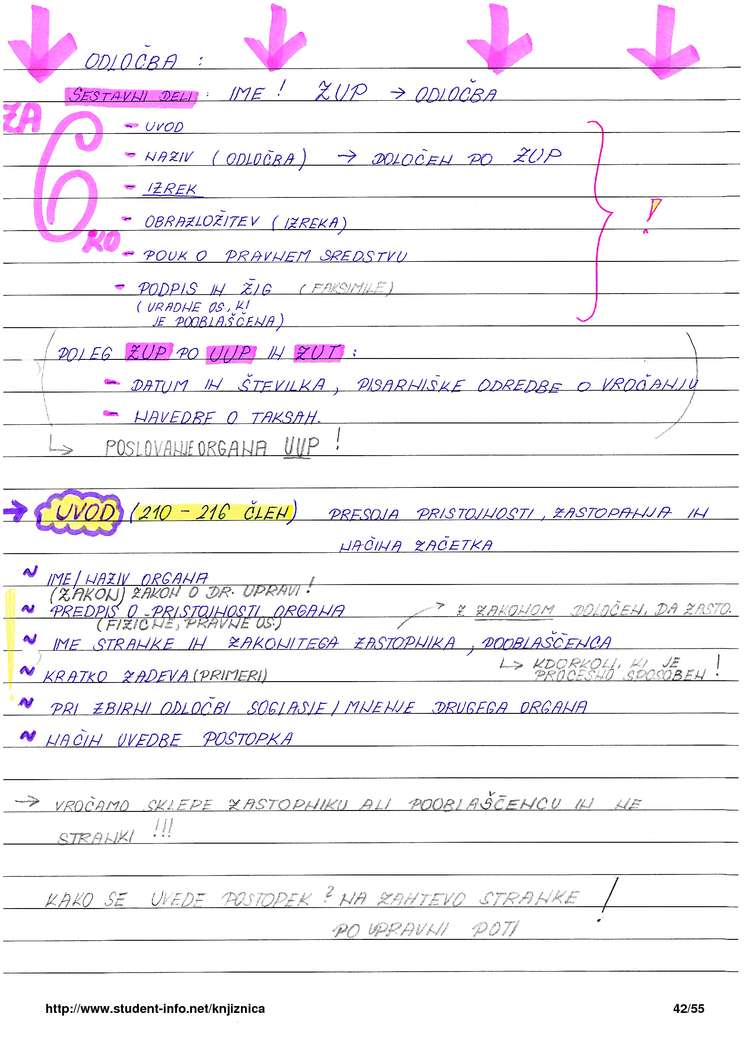 ODLOČBA :
SESTAVNI DELI : IME ! ZUP → ODLOČBA
ZA
6
KO
- UVOD
- NAZIV (ODLOČBA) → DOLOČEN PO ZUP
- IZREK
- OBRAZLOŽITEV (IZREKA)
- POUK O PRAVNEM SREDSTVU
- PODPIS IN ŽIG (FAKSIMILE)
(URADNE OS., KI
JE POOBLAŠČENA)
!
POLEG ZUP PO UUP IN ZUT :
- DATUM IN ŠTEVILKA, PISARNIŠKE ODREDBE O VROČANJU
- NAVEDBE O TAKSAH.
↳ POSLOVANJE ORGANA UUP !
→ UVOD (210 - 216 ČLEN) PRESOJA PRISTOJNOSTI, ZASTOPANJA IN
NAČINA ZAČETKA
~ IME/NAZIV ORGANA
(ZAKON) ZAKON O DR. UPRAVI !
~ PREDPIS O PRISTOJNOSTI ORGANA → Z ZAKONOM DOLOČEN, DA ZASTO.
(FIZIČNE, PRAVNE OS.)
~ IME STRANKE IN ZAKONITEGA ZASTOPNIKA, POOBLAŠČENCA
↳ KDORKOLI, KI JE
PROCESNO SPOSOBEN !
~ KRATKO ZADEVA (PRIMERI)
~ PRI ZBIRNI ODLOČBI SOGLASJE/MNENJE DRUGEGA ORGANA
~ NAČIN UVEDBE POSTOPKA
→ VROČAMO SKLEPE ZASTOPNIKU ALI POOBLAŠČENCU IN NE
STRANKI !!!
KAKO SE UVEDE POSTOPEK ? NA ZAHTEVO STRANKE !
PO UPRAVNI POTI
http://www.student-info.net/knjiznica
42/55